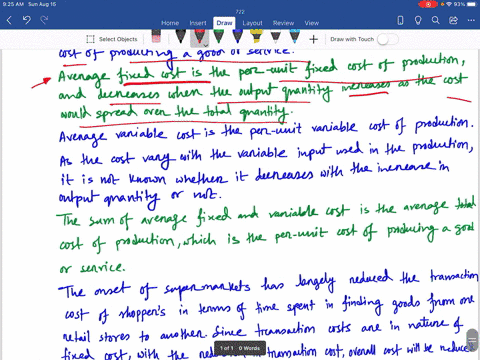 9:25 AM Sun Aug 15
93%
722
Home Insert Draw Layout Review View
Select Objects Draw with Touch
cost of producing a good or service.
Average fixed cost is the per-unit fixed cost of production,
and decreases when the output quantity increases as the cost
would spread over the total quantity.
Average variable cost is the per-unit variable cost of production.
As the cost vary with the variable input used in the production,
it is not known whether it decreases with the increase in
output quantity or not.
The sum of average fixed and variable cost is the average total
cost of production, which is the per-unit cost of producing a good
or service.
The onset of supermarkets has largely reduced the transaction
cost of shopper's in terms of time spent in finding goods from one
retail stores to another. Since transaction costs are in nature of
fixed cost, with the transaction cost, overall cost will be reduce
1 of 1 0 Words